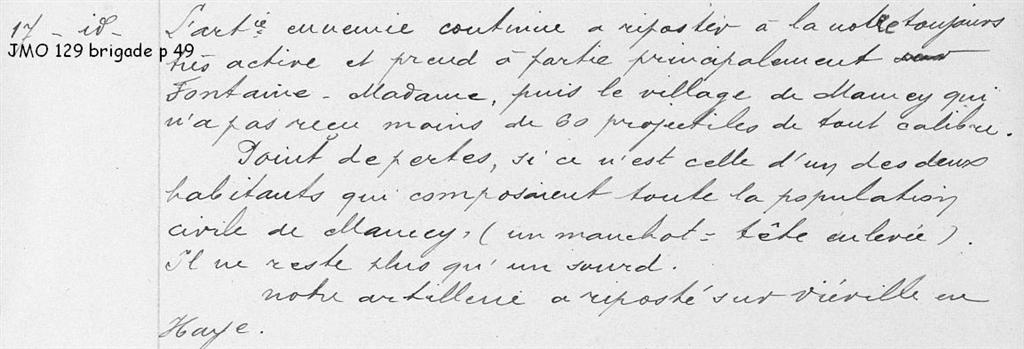 17 - id -
JMO 129 brigade p 49
L'artie ennemie continue a riposter à la notre toujours
très active et prend à partie principalement sur
Fontaine - Madame, puis le village de Mamey qui
n'a pas reçu moins de 60 projectiles de tout calibre.
Point de pertes, si ce n'est celle d'un des deux
habitants qui composaient toute la population
civile de Mamey, (un manchot = tête enlevée).
Il ne reste plus qu'un sourd.
notre artillerie a riposté sur Viéville en
Haye.